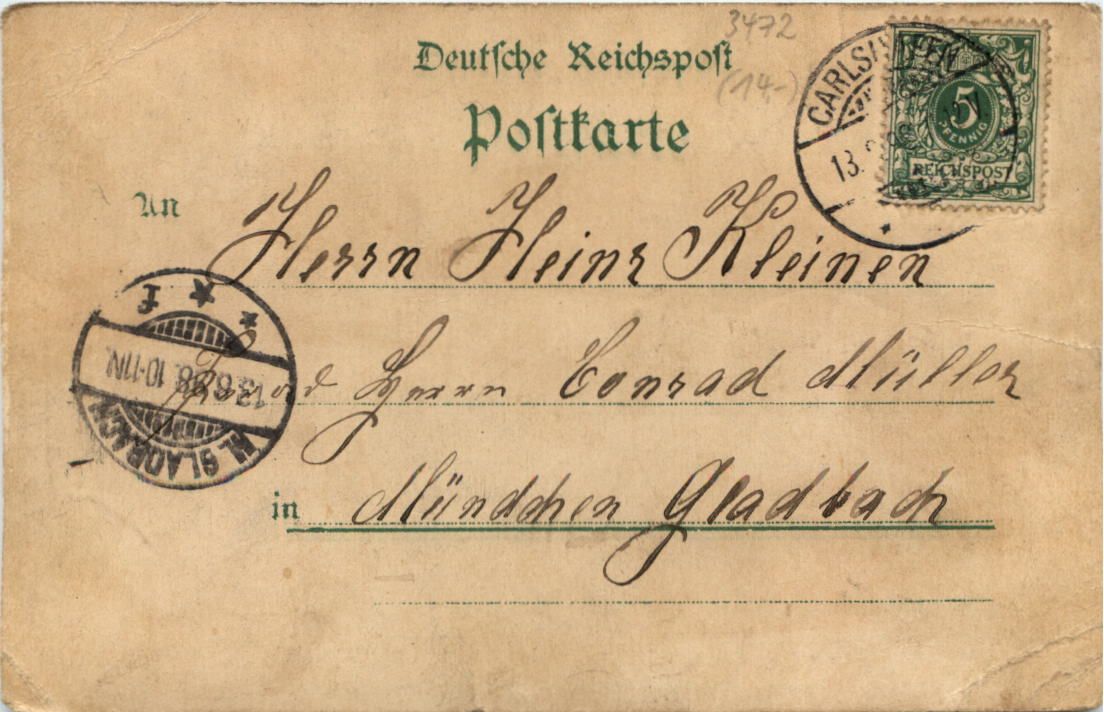 3472
Deutsche Reichspost
(14,-)
Postkarte
CARLSHAFEN
13.
5
PFENNIG
REICHSPOST
An
Herrn Heinr Kleinen
Herrn Conrad Müller
in Mündchen Gladbach
M. GLADBACH
13.8.98. 10-11N.
f